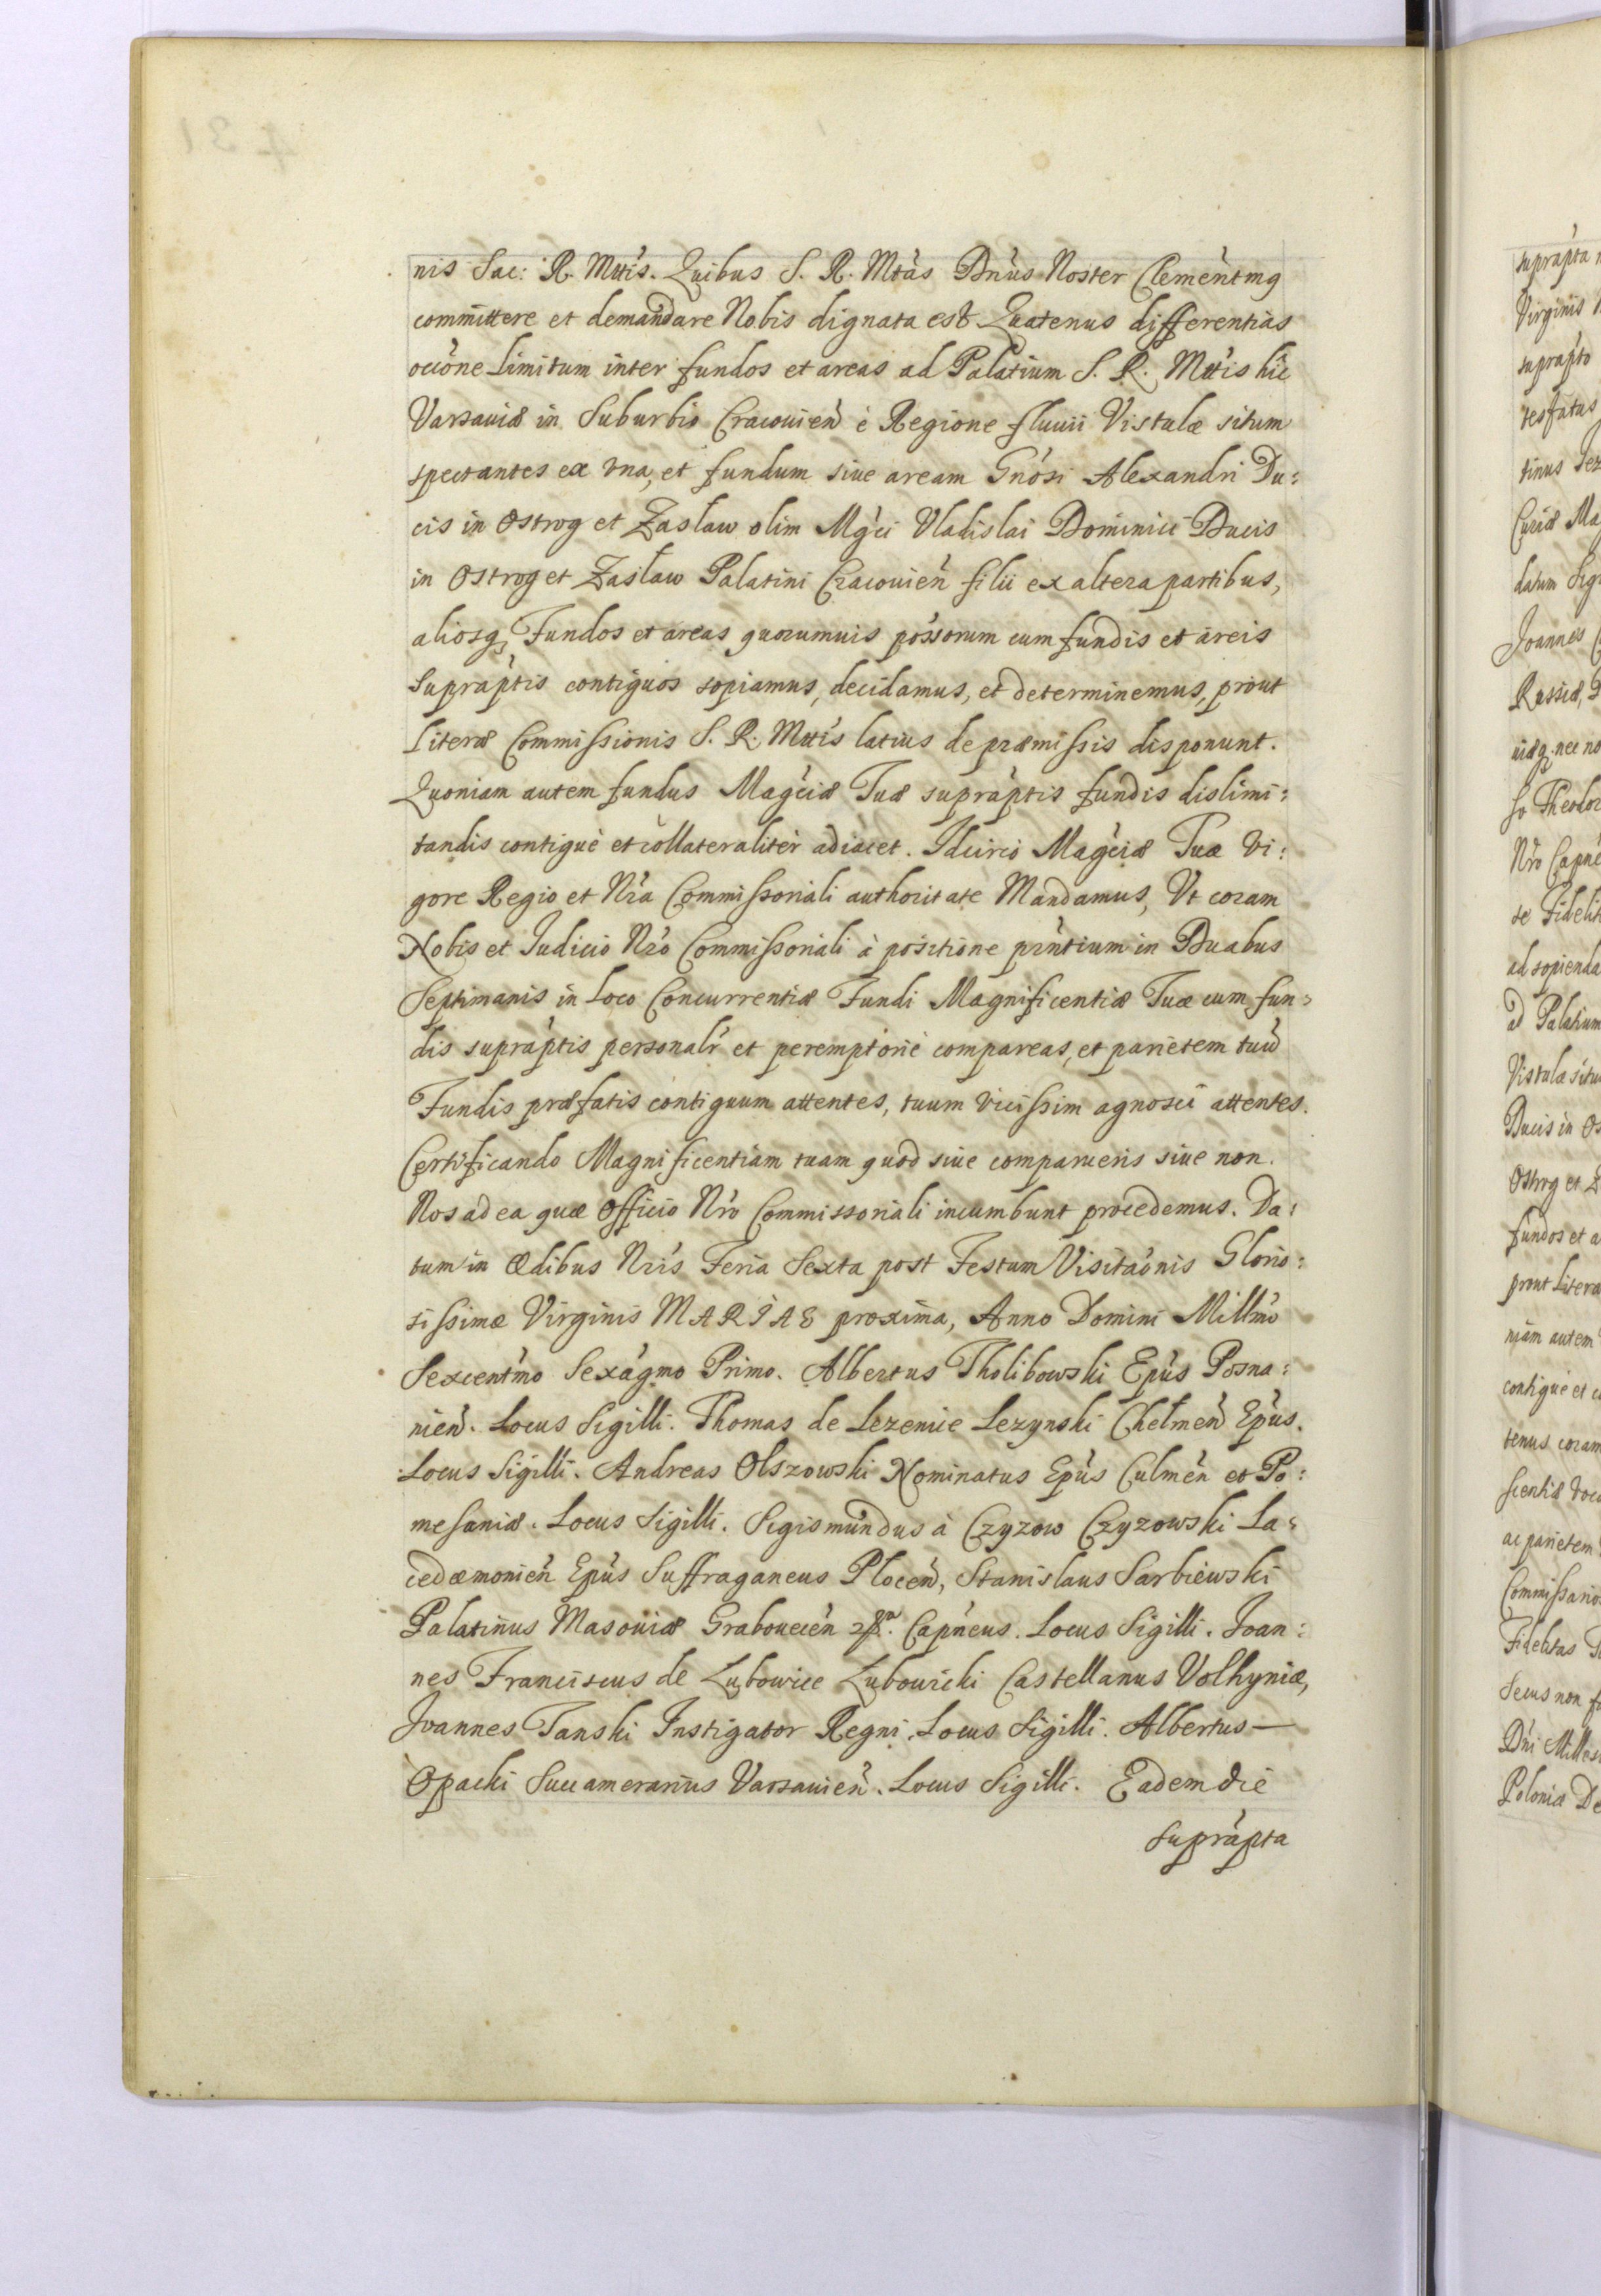 nis Sac: R. Mttis. Quibus S. R. Mtàs Dnùs Noster Clemèntmq
committere et demandare Nobis dignata est Quatenus differentias
occòne Limitum inter fundos et areas ad Palatium S. R. Mttis hic
Varsauiæ in Suburbio Cracouien̄ è Regione fluuii Vistulæ situm
spectantes ex vna, et fundum siue aream Gnòsi Alexandri Du:
cis in Ostrog et Zasław olim Mgci Vladislai Dominici Ducis
in Ostrog et Zasław Palatini Cracouień filii ex altera partibus,
aliosq₃ Fundos et areas quorumuis possorum cum fundis et areis
supràptis contiguos sopiamus, decidamus, et determinemus, prout
Literæ Commissionis S. R. Mttis latius de præmissis disponunt.
Quoniam autem fundus Magciæ Tuæ supràptis fundis dislimi:
tandis contiguè et collateraliter adiacet. Idcirco Magciæ Tuæ Vi:
gore Regio et Nra Commissoriali authoritate Mandamus, Vt coram
Nobis et Judicio Nro Commissoriali à positione pr̀ntium in Duabus
Septimanis in Loco Concurrentiæ Fundi Magnificentiæ Tuæ cum fun:
dis supràptis personalr̀ et peremptoriè compareas, et parietem tuū
Fundis præfatis contiguum attentes, tuum vicissim agnosci attentes.
Certificando Magnificentiam tuam quod siue comparueris siue non.
Nos ad ea quæ Officio Nro Commissoriali incumbunt procedemus. Da:
tum in Ædibus Nris Feria Sexta post Festum Visitaònis Glorio:
sissimæ Virginis MARIAE proxima, Anno Domini Millmò
Sexcentmò Sexàgmo Primo. Albertus Tholibowski Epùs Posna:
nień. Locus Sigilli. Thomas de Lezenice Lezynski Chełmeń Epùs.
Locus Sigilli. Andreas Olszowski Nominatus Epùs Culmèn et Po:
mesaniæ. Locus Sigilli. Sigismundus à Czyzow Czyzowski La:
cedæmonień Epùs Suffraganeus Płoceń, Stanislaus Sarbiewski
Palatinus Masouiæ Grabouecèn Capneus. Locus Sigilli. Joan:
nes Franciscus de Łubowice Łubowicki Castellanus Volhyniæ,
Joannes Tanski Instigator Regni. Locus Sigilli. Albertus —
Opacki Succamerarius Varsauień. Locus Sigilli. Eadem die
supràpta